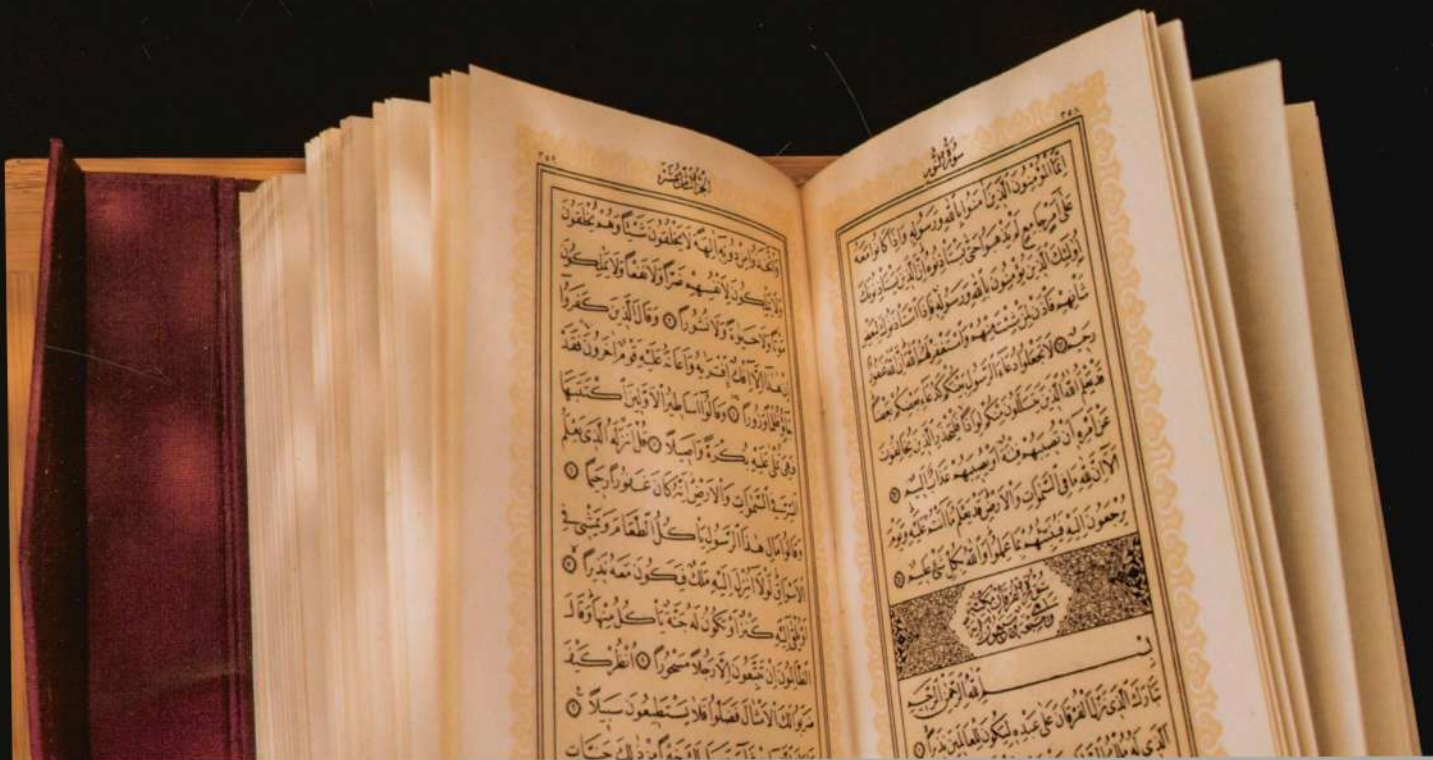 ٣٥٨
سورة النور
اِنَّمَا الْمُؤْمِنُونَ الَّذِينَ اٰمَنُوا بِاللّٰهِ وَرَسُولِهِ وَاِذَا كَانُوا مَعَهُ
عَلٰٓى اَمْرٍ جَامِعٍ لَمْ يَذْهَبُوا حَتّٰى يَسْتَأْذِنُوهُ اِنَّ الَّذِينَ يَسْتَأْذِنُونَكَ
اُولٰٓئِكَ الَّذِينَ يُؤْمِنُونَ بِاللّٰهِ وَرَسُولِهِ فَاِذَا اسْتَأْذَنُوكَ لِبَعْضِ
شَأْنِهِمْ فَأْذَنْ لِمَنْ شِئْتَ مِنْهُمْ وَاسْتَغْفِرْ لَهُمُ اللّٰهَ اِنَّ اللّٰهَ غَفُورٌ
رَحِيمٌ ۝ لَا تَجْعَلُوا دُعَاءَ الرَّسُولِ بَيْنَكُمْ كَدُعَاءِ بَعْضِكُمْ بَعْضًا
قَدْ يَعْلَمُ اللّٰهُ الَّذِينَ يَتَسَلَّلُونَ مِنْكُمْ لِوَاذًا فَلْيَحْذَرِ الَّذِينَ يُخَالِفُونَ
عَنْ اَمْرِهِ اَنْ تُصِيبَهُمْ فِتْنَةٌ اَوْ يُصِيبَهُمْ عَذَابٌ اَلِيمٌ ۝
اَلَٓا اِنَّ لِلّٰهِ مَا فِى السَّمٰوَاتِ وَالْاَرْضِ قَدْ يَعْلَمُ مَٓا اَنْتُمْ عَلَيْهِ وَيَوْمَ
يُرْجَعُونَ اِلَيْهِ فَيُنَبِّئُهُمْ بِمَا عَمِلُوا وَاللّٰهُ بِكُلِّ شَىْءٍ عَلِيمٌ ۝
سورة الفرقان مكية
وهي سبع وسبعون اية
بِسْمِ اللّٰهِ الرَّحْمٰنِ الرَّحِيمِ
تَبَارَكَ الَّذِى نَزَّلَ الْفُرْقَانَ عَلٰى عَبْدِهِ لِيَكُونَ لِلْعَالَمِينَ نَذِيرًا ۝
اَلَّذِى لَهُ مُلْكُ
٣٥٩
الجزء الثامن عشر
وَاتَّخَذُوا مِنْ دُونِهِ اٰلِهَةً لَا يَخْلُقُونَ شَيْـًٔا وَهُمْ يُخْلَقُونَ
وَلَا يَمْلِكُونَ لِاَنْفُسِهِمْ ضَرًّا وَلَا نَفْعًا وَلَا يَمْلِكُونَ
مَوْتًا وَلَا حَيٰوةً وَلَا نُشُورًا ۝ وَقَالَ الَّذِينَ كَفَرُٓوا
اِنْ هٰذَٓا اِلَّٓا اِفْكٌ افْتَرٰيهُ وَاَعَانَهُ عَلَيْهِ قَوْمٌ اٰخَرُونَ فَقَدْ
جَٓاؤُ ظُلْمًا وَزُورًا ۝ وَقَالُٓوا اَسَاطِيرُ الْاَوَّلِينَ اكْتَتَبَهَا
فَهِىَ تُمْلٰى عَلَيْهِ بُكْرَةً وَاَصِيلًا ۝ قُلْ اَنْزَلَهُ الَّذِى يَعْلَمُ
السِّرَّ فِى السَّمٰوَاتِ وَالْاَرْضِ اِنَّهُ كَانَ غَفُورًا رَحِيمًا ۝
وَقَالُوا مَالِ هٰذَا الرَّسُولِ يَأْكُلُ الطَّعَامَ وَيَمْشِى فِى
الْاَسْوَاقِ لَوْلَٓا اُنْزِلَ اِلَيْهِ مَلَكٌ فَيَكُونَ مَعَهُ نَذِيرًا ۝
اَوْ يُلْقٰٓى اِلَيْهِ كَنْزٌ اَوْ تَكُونُ لَهُ جَنَّةٌ يَأْكُلُ مِنْهَا وَقَالَ
الظَّالِمُونَ اِنْ تَتَّبِعُونَ اِلَّا رَجُلًا مَسْحُورًا ۝ اُنْظُرْ كَيْفَ
ضَرَبُوا لَكَ الْاَمْثَالَ فَضَلُّوا فَلَا يَسْتَطِيعُونَ سَبِيلًا ۝
خَيْرًا مِنْ ذٰلِكَ جَنَّاتٍ